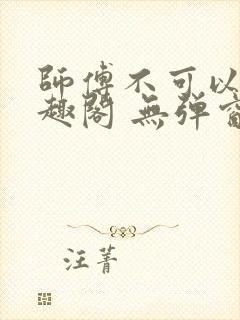 師傅不可以
趣閣 無彈窗
汪菁